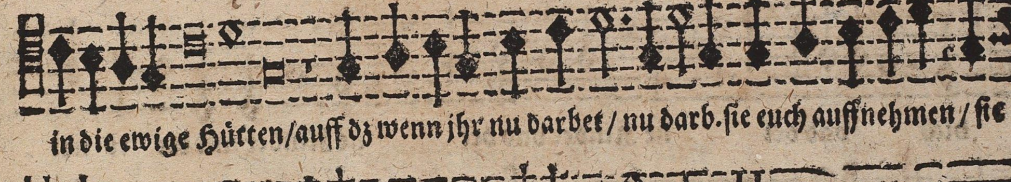 in die ewige Hütten/auff dz wenn jhr nu darbet/ nu darb.sie euch auffnehmen/ sie